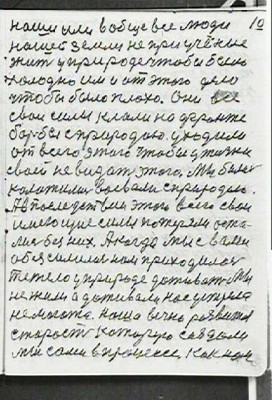 10
нами или вообще все люди
нашей земли не приучены
жит у природе чтобы было
холодно им и от этого дело
чтобы было плохо. Они все
свои силы клали на фронте
борбы с природою. уходили
от всего этого чтобы у жизни
своей не видат этого, Мы были
воевали с природою.
А в последствии этого всего свои
имеющие силы потеряли оста
лис без них. А когда мы с вами
обессилели нам приходилос
тяжело у природе доживат. Мы
не жили а доживали нас
не могота. наша вечно развитая
старост которую создали
мы сами в процессе, как нам